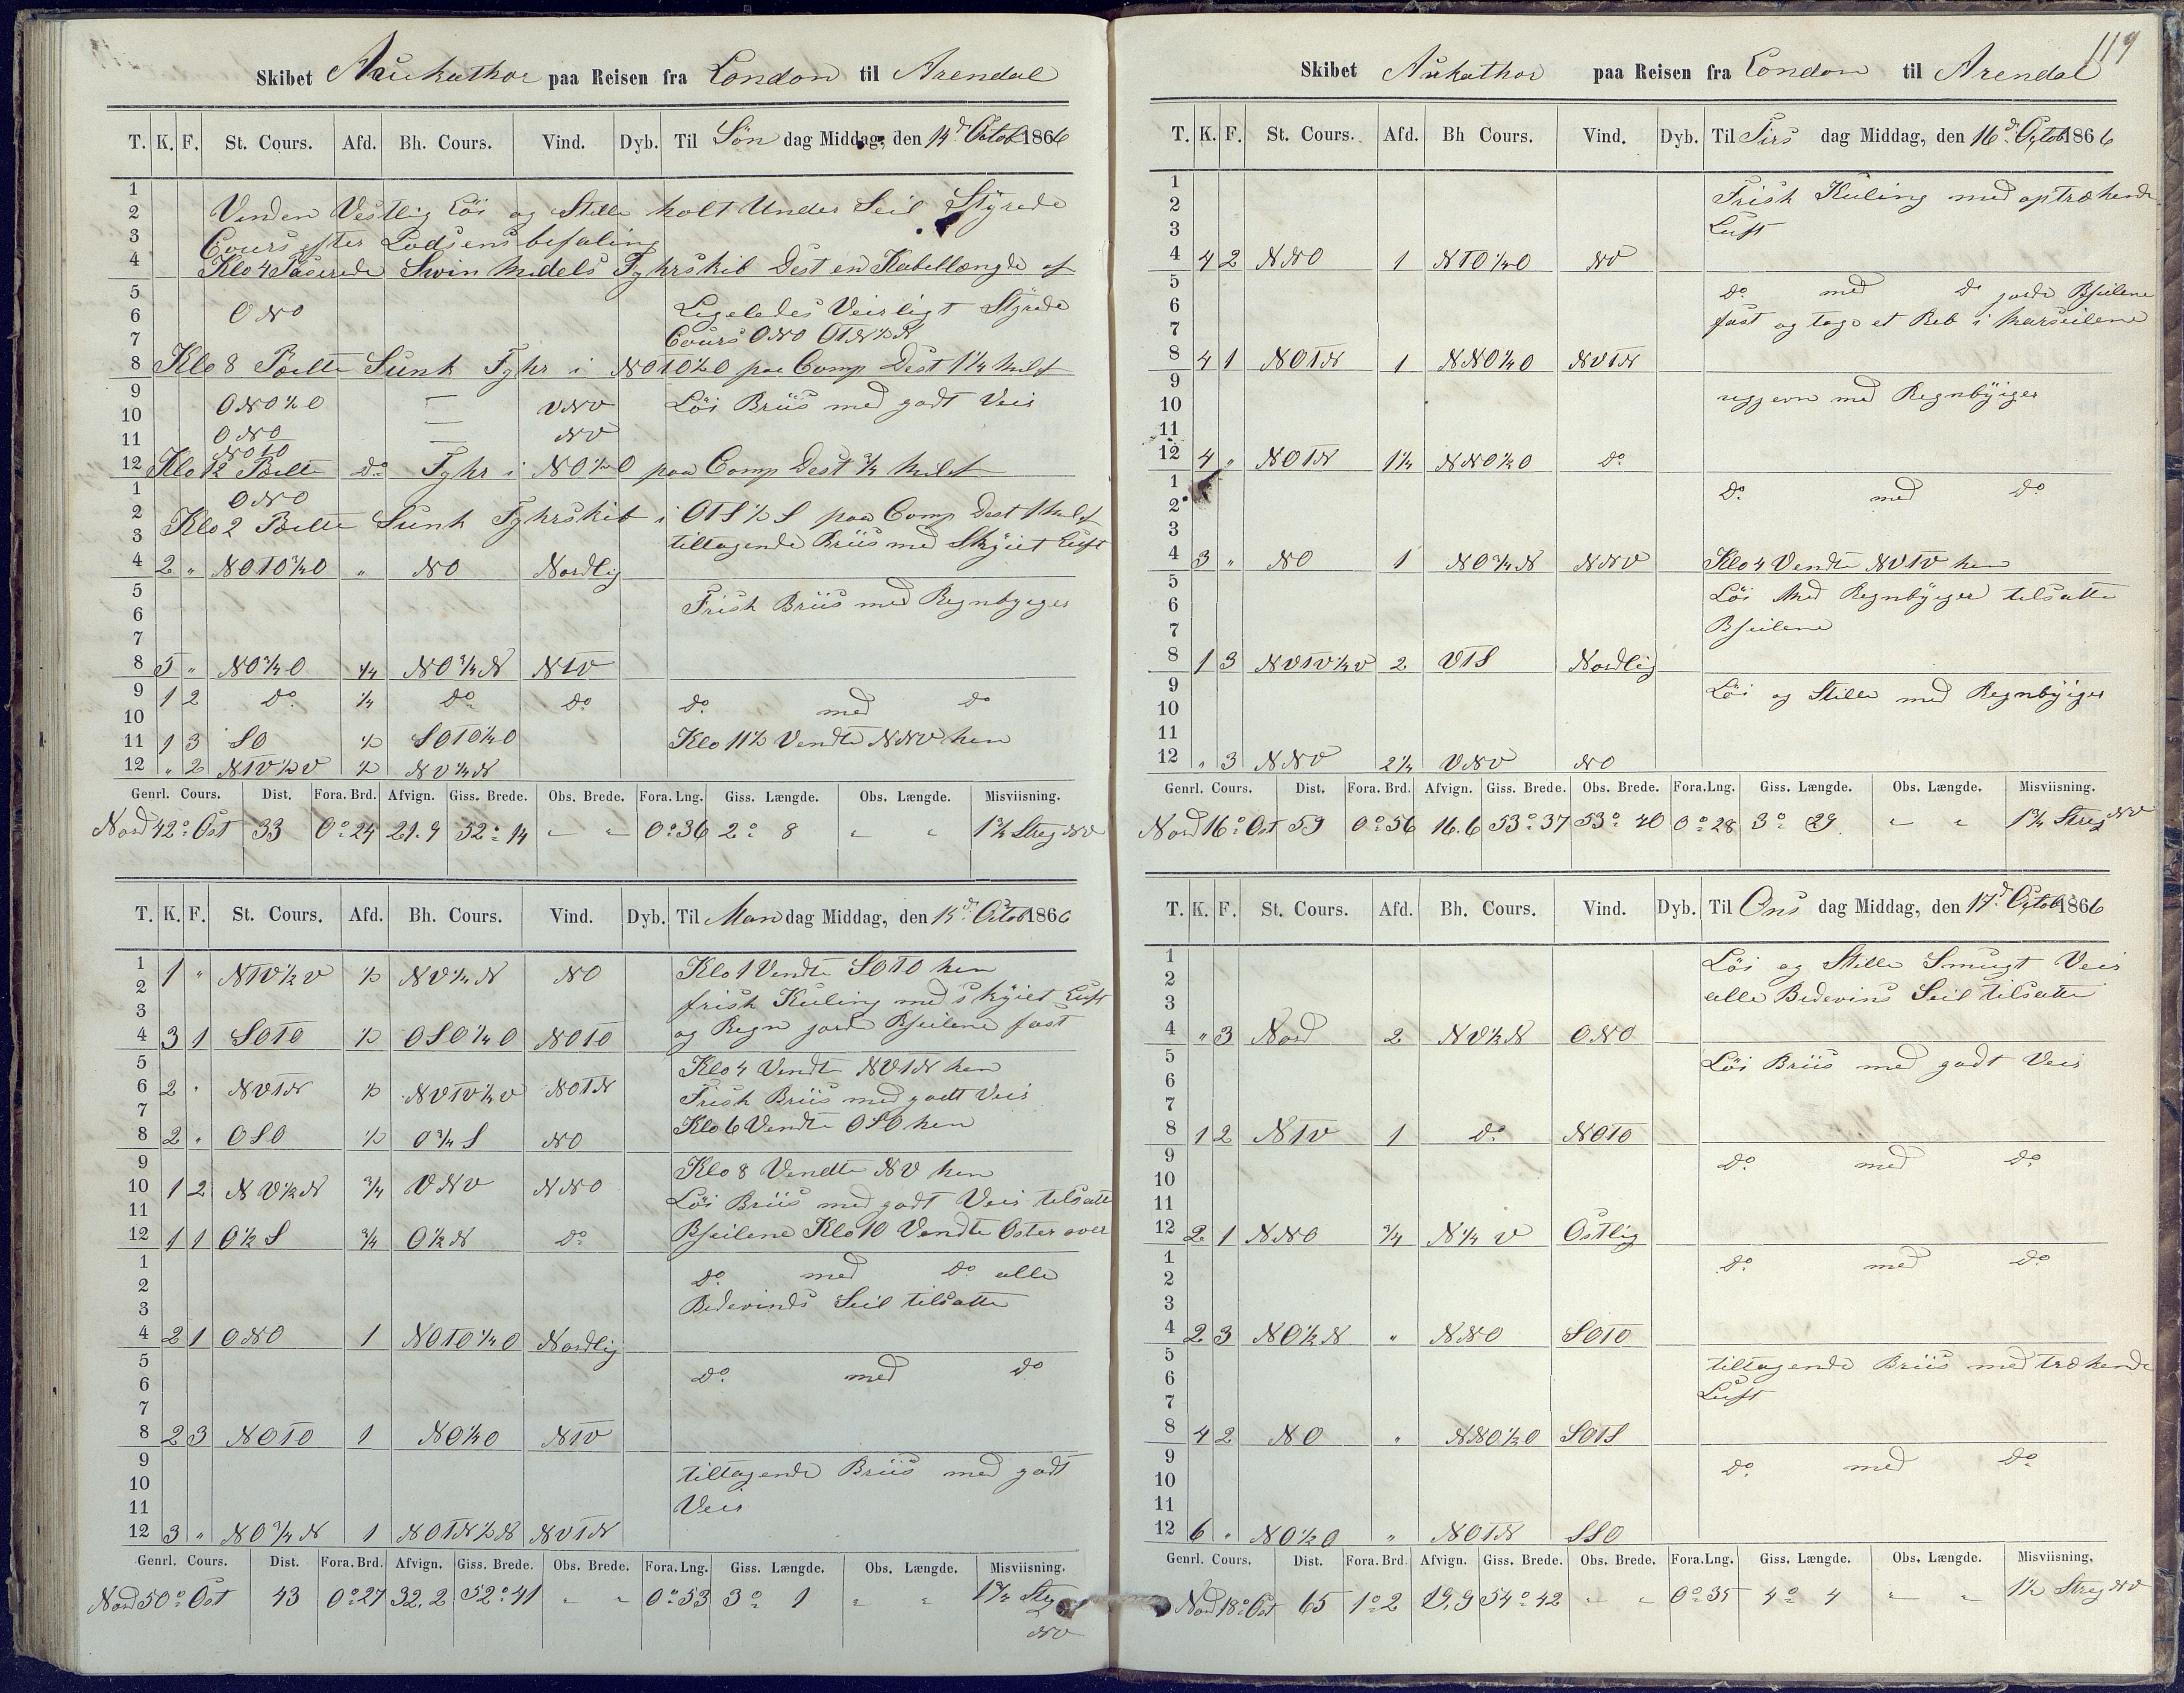 Skibet Aukathor paa Reisen fra London til Arendal
T. K. F. St. Cours. Afd. Bh. Cours. Vind. Dyb. Til Søn dag Middag, den 14d Octob 1866
1
2 Vinden Vestlig Löi og Stille holt Under Seil Styrede
3 Cours efter Lodsens befaling
4 Klo 4 Paserede Swin Midels Fyhrskib Dest en Kabellængde af
5
6 ONO Ligeledes Veirligt Styrede
7 Cours ONO OTN½N
8 Klo 8 Peilte Sunk Fyhr i NOTO½O paa Comp Dest 1¼ Mil af
9 ONO½O — VNV Löi Briis med godt Veir
10 —
11 ONO — NV
NOTO
12 Klo 12 Peilte do Fyhr i NO½O paa Comp Dest ¾ Mil af
1 ONO
2 Klo 2 Peilte Sunk Fyhrskib i OTS½S paa Comp Dest 1 Mil af
3 tiltagende Briis med Skyiet Luft
4 2 " NOTO¾O " NO Nordlig
5 Frisk Briis med Regnbyiger
6
7
8 5 " NO¾O ¼ NO¾N NTV
9 1 2 do ¼ do do do med do
10
11 1 3 SO ½ SOTO¼O Klo 11½ Vendte NNV hen
12 " 2 NTV½V ½ NV¼N
Genrl. Cours. Dist. Fora. Brd. Afvign. Giss. Brede. Obs. Brede. Fora. Lng. Giss. Længde. Obs. Længde. Misviisning.
Nord 42° Ost 33 0° 24 21.9 52° 14 " " 0° 36 2° 8 " " 1¾ Streg NV
T. K. F. St. Cours. Afd. Bh. Cours. Vind. Dyb. Til Man dag Middag, den 15d Octob 1866
1 1 " NTV½V ½ NV¼N NO Klo 1 Vendte SOTO hen
2 frisk Kuling med skyiet Luft
3
4 3 1 SOTO ½ OSO¼O NOTO og Regn jorde Bseilene fast
5 Klo 4 Vendte NVTN hen
6 2 " NVTN ½ NVTV¼V NOTN Frisk Briis med godt Veir
7
8 2 " OSO ½ O¾S NO Klo 6 Vendte OSO hen
9 Klo 8 Vendte NV hen
10 1 2 NV½N ¾ VNV NNO Löi Briis med godt Veir tilsatte
11
12 1 1 O½S ¾ O½N do Bseilene Klo 10 Vendte Oster over
1 do med do alle
2 Bidevinds Seil tilsatte
3
4 2 1 ONO 1 NOTO¼O Nordlig
5 do med do
6
7
8 2 3 NOTO 1 NO¼O NTV
9 tiltagende Briis med godt
10 Veir
11
12 3 " NO¾N 1 NOTN½N NVTN
Genrl. Cours. Dist. Fora. Brd. Afvign. Giss. Brede. Obs. Brede. Fora. Lng. Giss. Længde. Obs. Længde. Misviisning.
Nord 50° Ost 43 0° 27 32.2 52° 41 " " 0° 53 3° 1 " " 1¾ Streg
NV
119
Skibet Aukathor paa Reisen fra London til Arendal
T. K. F. St. Cours. Afd. Bh Cours. Vind. Dyb. Til Tirs dag Middag, den 16d Octob 1866
1 Frisk Kuling med optrækende
2 Luft
3
4 4 2 NNO 1 NTO¼O NV
5 do med do jorde Bseilene
6 fast og toge et Reb i Marseilene
7
8 4 1 NOTN 1 NNO¼O NVTN
9 ujevn med Regnbyiger
10
11
12 4 " NOTN 1¼ NNO½O do
1 do med do
2
3
4 3 " NO 1 NO¾N NNV Klo 4 Vendte NVTV hen
5 Löi Med Regnbyiger tilsatte
6 Bseilene
7
8 1 3 NVTV½V 2 VTS Nordlig
9 Löi og Stille med Regnbyiger
10
11
12 " 3 NNV 2¼ VNV NO
Genrl. Cours. Dist. Fora. Brd. Afvign. Giss. Brede. Obs. Brede. Fora. Lng. Giss. Længde. Obs. Længde. Misviisning.
Nord 16° Ost 59 0° 56 16.6 53° 37 53° 40 0° 28 3° 29 " " 1¾ Streg NV
T. K. F. St. Cours. Afd. Bh. Cours. Vind. Dyb. Til Ons dag Middag, den 17d Octob 1866
1 Löi og Stille Smugt Veir
2 alle Bidevins Seil tilsatte
3
4 " 3 Nord 2 NV½N ONO
5 Löi Briis med godt Veir
6
7
8 1 2 NTV 1 do NOTO
9 do med do
10
11
12 2 1 NNO ¾ N¼V Ostlig
1 do med do
2
3
4 2 3 NO½N " NNO SOTO
5 tiltagende Briis med trækende
6 Luft
7
8 4 2 NO " NNO½O SOTS
9 do med do
10
11
12 6 " NO½O " NOTN SSO
Genrl. Cours. Dist. Fora. Brd. Afvign. Giss. Brede. Obs. Brede. Fora. Lng. Giss. Længde. Obs. Længde. Misviisning.
Nord 18° Ost 65 1° 2 19.9 54° 42 " " 0° 35 4° 4 " " 1½ Streg NV